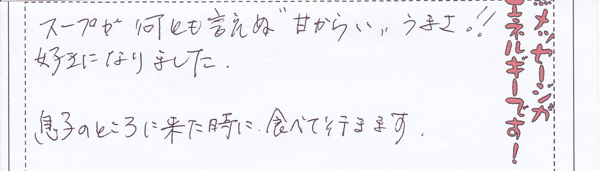 スープが何とも言えぬ"甘からい"うまさ!!
好きになりました.
息子のところに来た時に、食べて行きます.
メッセージが
エネルギーです!